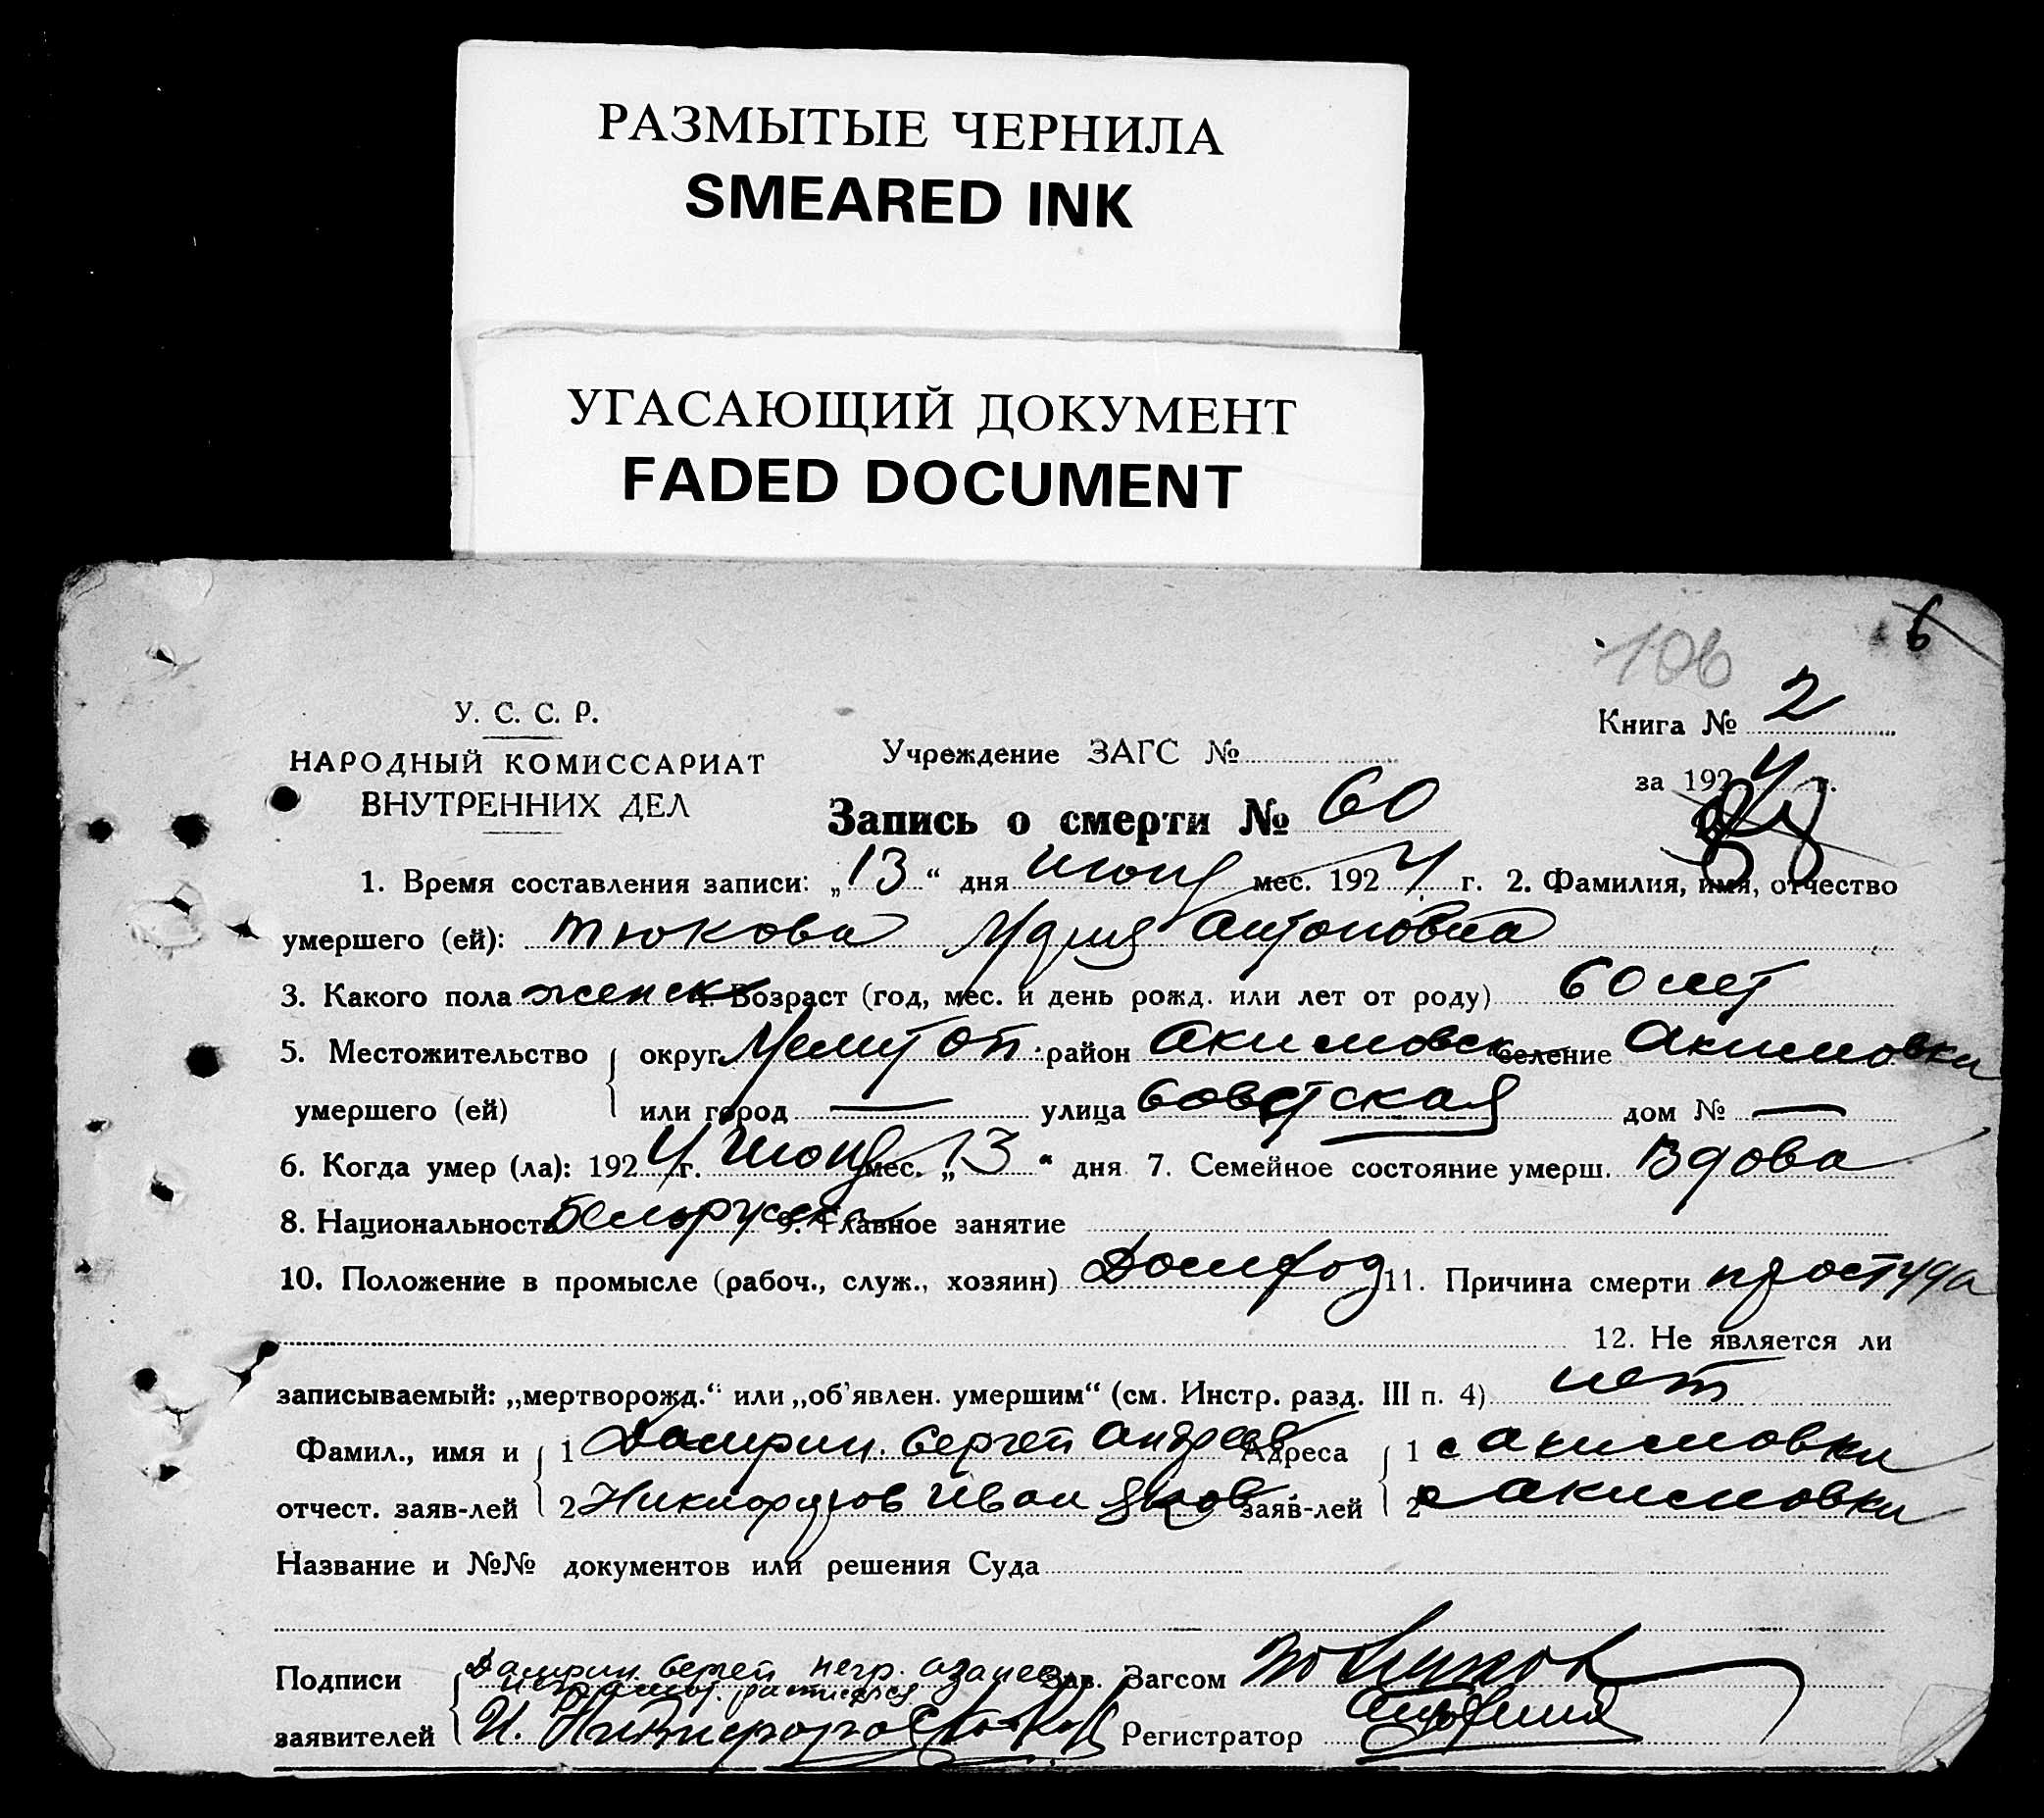 РАЗМЫТЫЕ ЧЕРНИЛА
SMEARED INK
УГАСАЮЩИЙ ДОКУМЕНТ
FADED DOCUMENT
6
106
У. С. С. Р.
НАРОДНЫЙ КОМИССАРИАТ
ВНУТРЕННИХ ДЕЛ
Учреждение ЗАГС №
Книга № 2
за 1924 г.
Запись о смерти № 60
1. Время составления записи: „13“ дня июня мес. 1924 г. 2. Фамилия, имя, отчество
умершего (ей): Тюкова Мария Антоновна
3. Какого пола женск 4. Возраст (год, мес. и день рожд. или лет от роду) 60 лет
5. Местожительство округ Мелитоп. район Акимовск селение Акимовки
умершего (ей) или город — улица Советская дом № —
6. Когда умер (ла): 1924 г. июня мес. „13“ дня 7. Семейное состояние умерш. Вдова
8. Национальность Белорусска 9. Главное занятие
10. Положение в промысле (рабоч., служ., хозяин) 11. Причина смерти простуда
12. Не является ли
записываемый: „мертворожд.“ или „об'явлен. умершим“ (см. Инстр. разд. III п. 4) нет
Фамил., имя и 1 Сергей Андреев Адреса 1 с Акимовки
отчест. заяв-лей 2 Никифоров Иван Яков. заяв-лей 2 с Акимовки
Название и №№ документов или решения Суда
Подписи Сергей негр. Зав. Загсом
расписался
заявителей И. Никифоров Регистратор